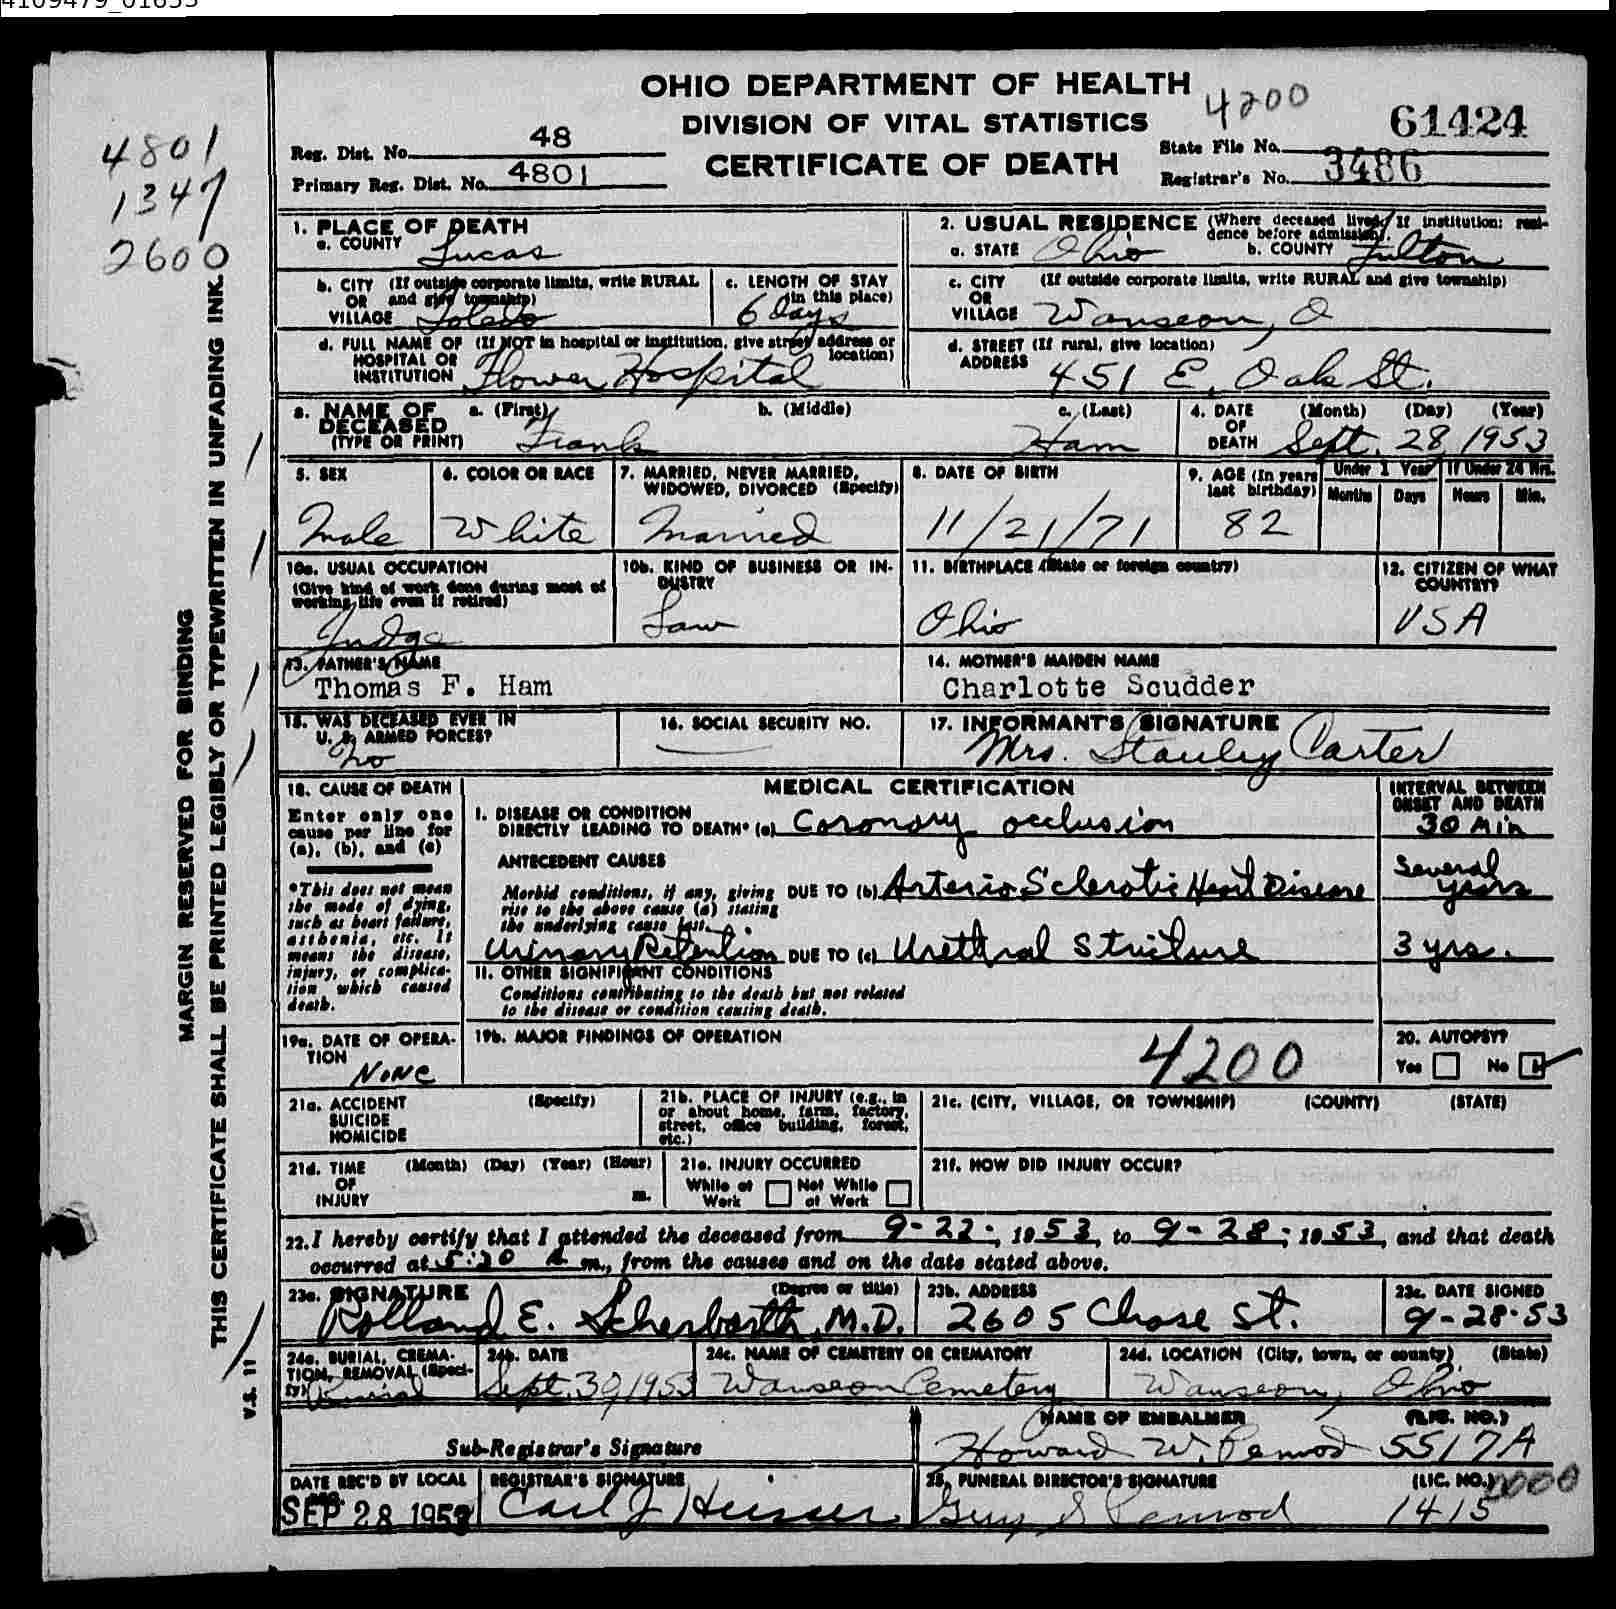 4109479_01653
OHIO DEPARTMENT OF HEALTH
DIVISION OF VITAL STATISTICS
CERTIFICATE OF DEATH
4200
61424
Reg. Dist. No. 48
Primary Reg. Dist. No. 4801
State File No.
Registrar's No. 3486
4801
1347
2600
MARGIN RESERVED FOR BINDING
THIS CERTIFICATE SHALL BE PRINTED LEGIBLY OR TYPEWRITTEN IN UNFADING INK.
V.S. 11
1. PLACE OF DEATH
a. COUNTY Lucas
2. USUAL RESIDENCE (Where deceased lived. If institution: resi-
dence before admission).
a. STATE Ohio b. COUNTY Fulton
b. CITY (If outside corporate limits, write RURAL
OR and give township)
VILLAGE Toledo
c. LENGTH OF STAY
(in this place)
6 Days
c. CITY (If outside corporate limits, write RURAL and give township)
OR
VILLAGE Wauseon, O
d. FULL NAME OF (If NOT in hospital or institution, give street address or
HOSPITAL OR location)
INSTITUTION Flower Hospital
d. STREET (If rural, give location)
ADDRESS 451 E. Oak St.
3. NAME OF a. (First) b. (Middle) c. (Last)
DECEASED
(TYPE OR PRINT) Frank Ham
4. DATE (Month) (Day) (Year)
OF
DEATH Sept. 28, 1953
5. SEX
Male
6. COLOR OR RACE
White
7. MARRIED, NEVER MARRIED,
WIDOWED, DIVORCED (Specify)
Married
8. DATE OF BIRTH
11/21/71
9. AGE (In years
last birthday)
82
Under 1 Year If Under 24 Hrs.
Months Days Hours Min.
10a. USUAL OCCUPATION
(Give kind of work done during most of
working life even if retired)
Judge
10b. KIND OF BUSINESS OR IN-
DUSTRY
Law
11. BIRTHPLACE (State or foreign country)
Ohio
12. CITIZEN OF WHAT
COUNTRY?
USA
13. FATHER'S NAME
Thomas F. Ham
14. MOTHER'S MAIDEN NAME
Charlotte Scudder
15. WAS DECEASED EVER IN
U. S. ARMED FORCES?
No
16. SOCIAL SECURITY NO.
17. INFORMANT'S SIGNATURE
Mrs. Stanley Carter
18. CAUSE OF DEATH
Enter only one
cause per line for
(a), (b), and (c)
*This does not mean
the mode of dying,
such as heart failure,
asthenia, etc. It
means the disease,
injury, or complica-
tion which caused
death.
MEDICAL CERTIFICATION
INTERVAL BETWEEN
ONSET AND DEATH
I. DISEASE OR CONDITION
DIRECTLY LEADING TO DEATH* (a) Coronary occlusion 30 Min
ANTECEDENT CAUSES
Morbid conditions, if any, giving DUE TO (b) Arterio Sclerotic Heart Disease Several years
rise to the above cause (a) stating
the underlying cause last.
Urinary Retention DUE TO (c) Urethral Stricture 3 yrs.
II. OTHER SIGNIFICANT CONDITIONS
Conditions contributing to the death but not related
to the disease or condition causing death.
19a. DATE OF OPERA-
TION
None
19b. MAJOR FINDINGS OF OPERATION
4200
20. AUTOPSY?
Yes No
21a. ACCIDENT (Specify)
SUICIDE
HOMICIDE
21b. PLACE OF INJURY (e.g., in
or about home, farm, factory,
street, office building, forest,
etc.)
21c. (CITY, VILLAGE, OR TOWNSHIP) (COUNTY) (STATE)
21d. TIME (Month) (Day) (Year) (Hour)
OF
INJURY m.
21e. INJURY OCCURRED
While at Not While
Work at Work
21f. HOW DID INJURY OCCUR?
22. I hereby certify that I attended the deceased from 9-22-, 1953, to 9-28-, 1953, and that death
occurred at 5:30 A m., from the causes and on the date stated above.
23a. SIGNATURE (Degree or title)
Rolland E. Scherbarth, M.D.
23b. ADDRESS
2605 Chase St.
23c. DATE SIGNED
9-28-53
24a. BURIAL, CREMA-
TION, REMOVAL (Speci-
fy) Burial
24b. DATE
Sept. 30, 1953
24c. NAME OF CEMETERY OR CREMATORY
Wauseon Cemetery
24d. LOCATION (City, town, or county) (State)
Wauseon, Ohio
Sub-Registrar's Signature
NAME OF EMBALMER (LIC. NO.)
Howard W. Penrod 5517A
DATE REC'D BY LOCAL
REG.
SEP 28 1953
REGISTRAR'S SIGNATURE
Carl J
25. FUNERAL DIRECTOR'S SIGNATURE (LIC. NO.)
Guy S Penrod 1415
0000